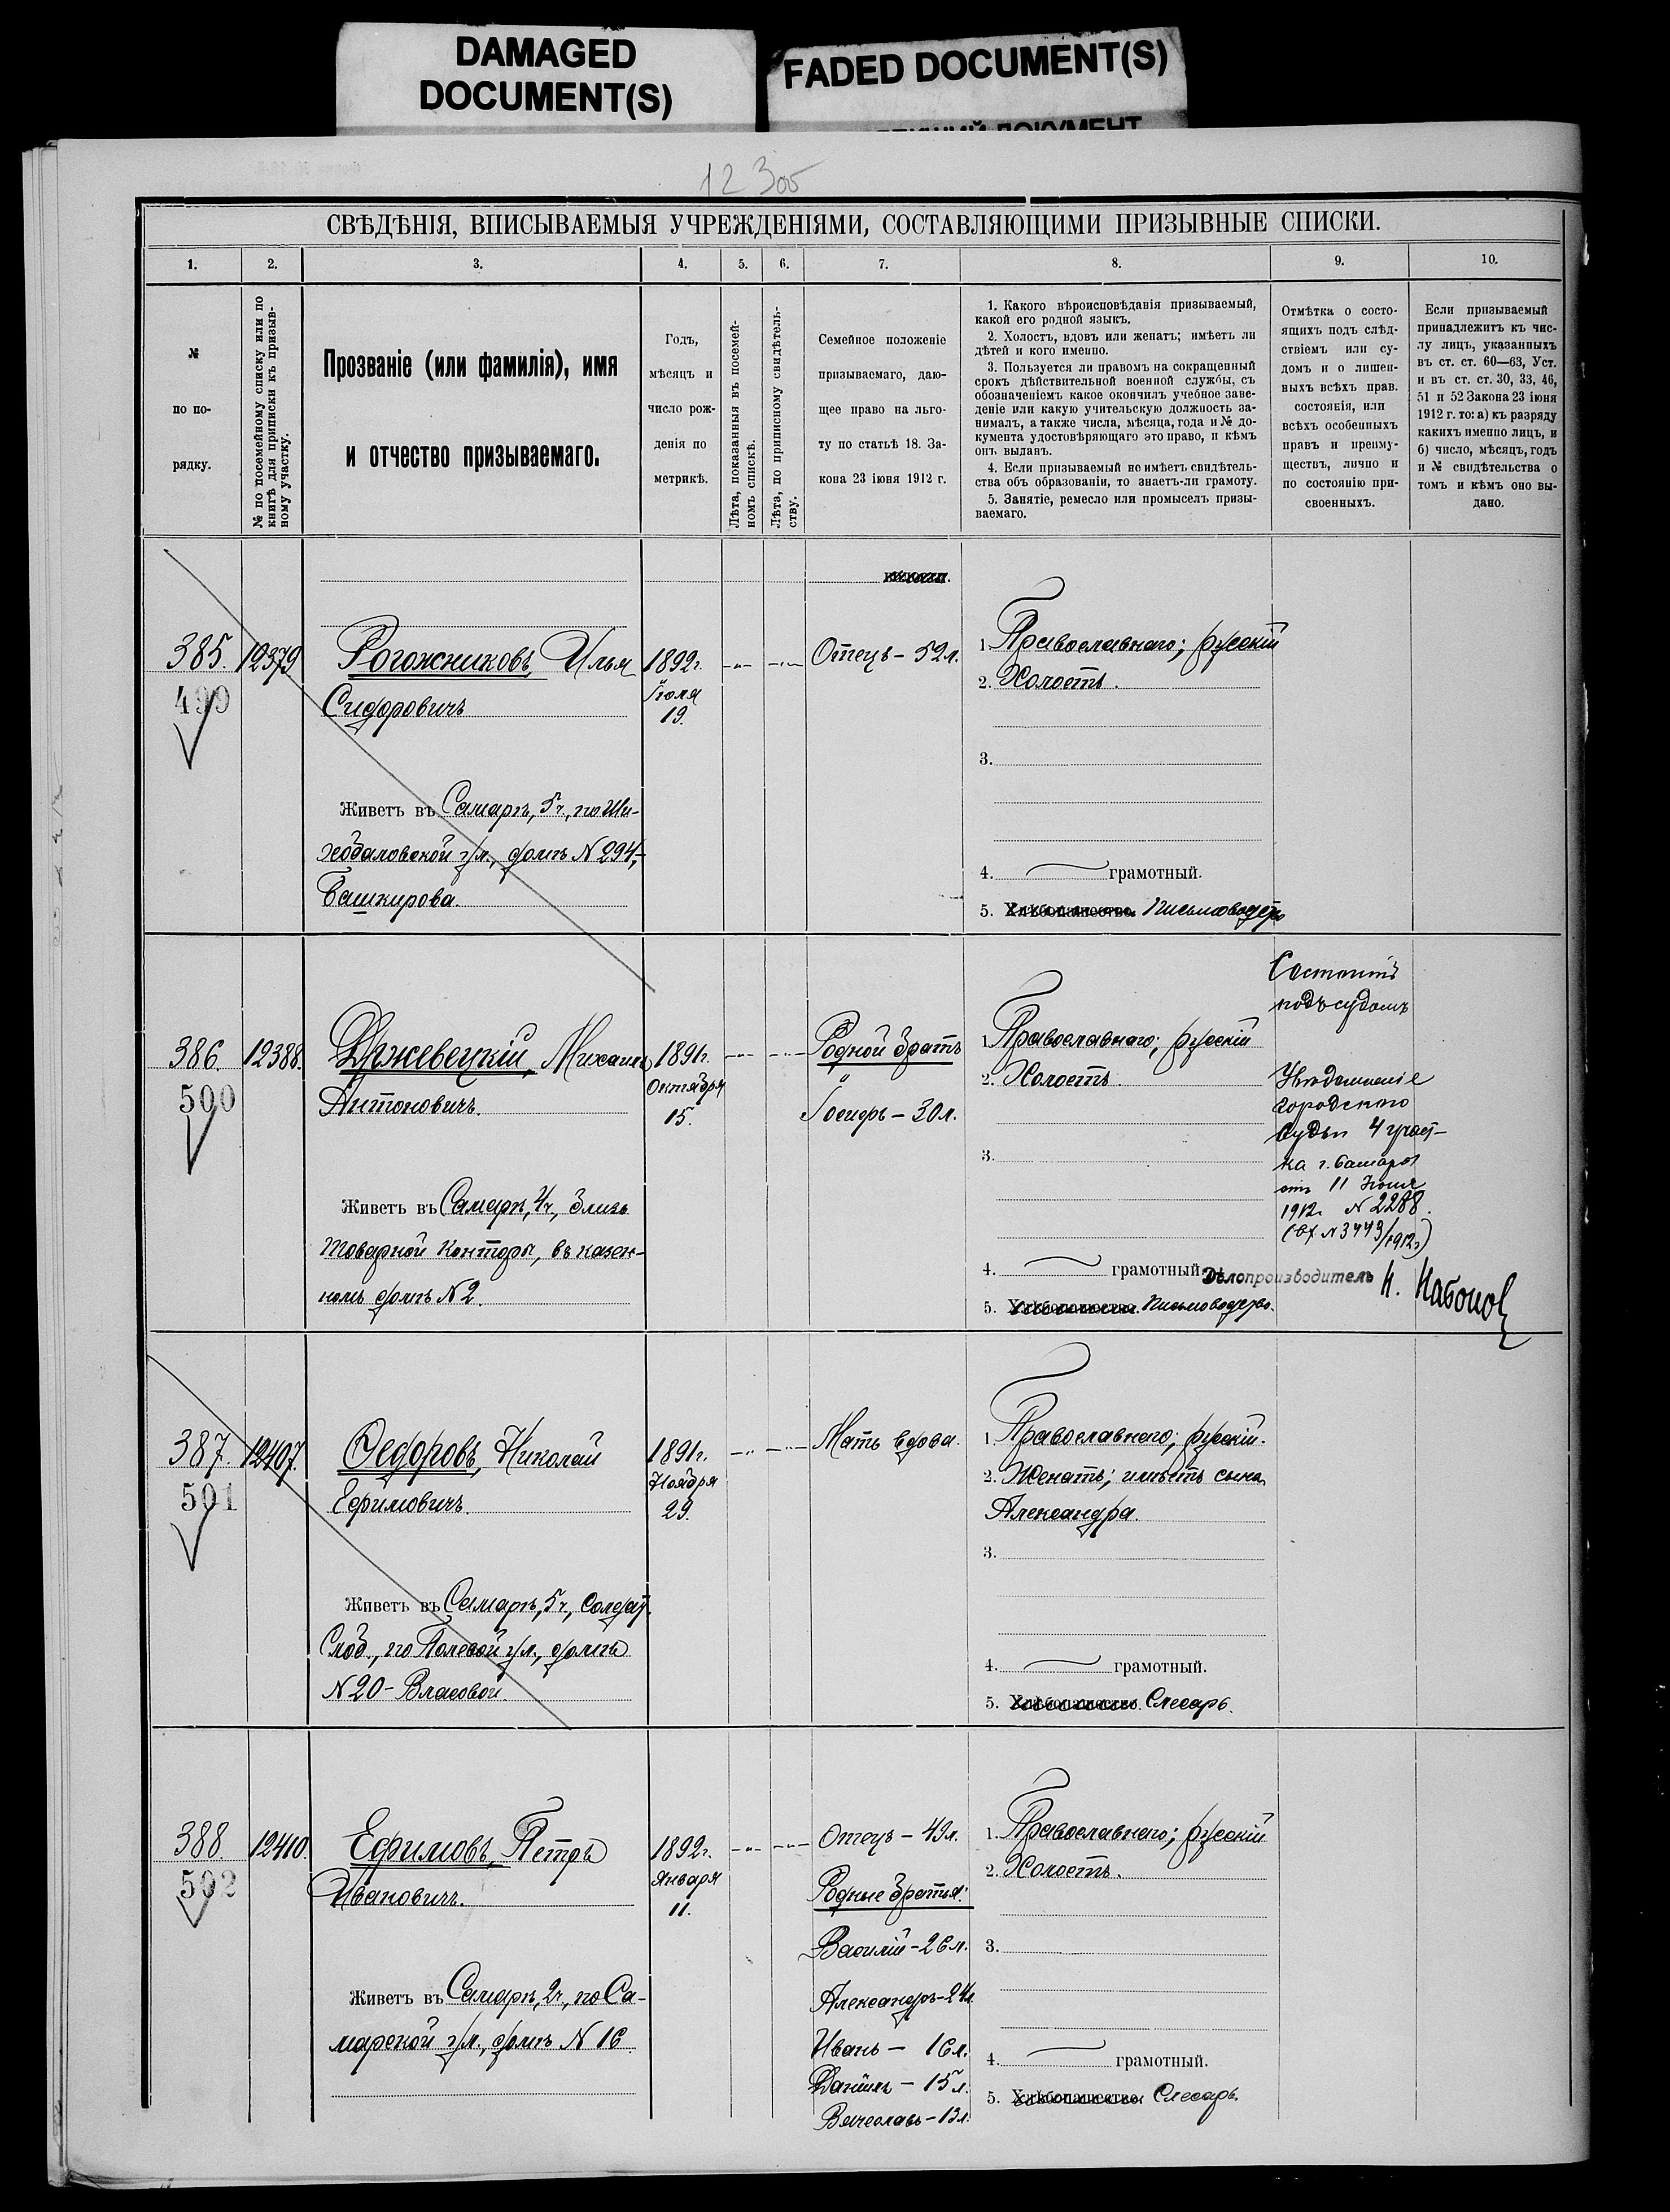 DAMAGED
DOCUMENT(S)
FADED DOCUMENT(S)
12 300
СВѢДѢНІЯ, ВПИСЫВАЕМЫЯ УЧРЕЖДЕНІЯМИ, СОСТАВЛЯЮЩИМИ ПРИЗЫВНЫЕ СПИСКИ.
1. 2. 3. 4. 5. 6. 7. 8. 9. 10.
№
по по-
рядку.
№ по посемейному списку или по
книгѣ для приписки къ призыв-
ному участку.
Прозваніе (или фамилія), имя
и отчество призываемаго.
Годъ,
мѣсяцъ и
число рож-
денія по
метрикѣ.
Лѣта, показанныя въ посемей-
номъ спискѣ.
Лѣта, по приписному свидѣтель-
ству.
Семейное положеніе
призываемаго, даю-
щее право на льго-
ту по статьѣ 18. За-
кона 23 іюня 1912 г.
1. Какого вѣроисповѣданія призываемый,
какой его родной языкъ.
2. Холостъ, вдовъ или женатъ; имѣетъ ли
дѣтей и кого именно.
3. Пользуется ли правомъ на сокращенный
срокъ дѣйствительной военной службы, съ
обозначеніемъ какое окончилъ учебное заве-
деніе или какую учительскую должность за-
нималъ, а также числа, мѣсяца, года и № до-
кумента удостовѣряющаго это право, и кѣмъ
онъ выданъ.
4. Если призываемый не имѣетъ свидѣтель-
ства объ образованіи, то знаетъ-ли грамоту.
5. Занятіе, ремесло или промыселъ призы-
ваемаго.
Отмѣтка о состо-
ящихъ подъ слѣд-
ствіемъ или су-
домъ и о лишен-
ныхъ всѣхъ прав.
состоянія, или
всѣхъ особенныхъ
правъ и преиму-
ществъ, лично и
по состоянію при-
своенныхъ.
Если призываемый
принадлежитъ къ чис-
лу лицъ, указанныхъ
въ ст. ст. 60—63, Уст.
и въ ст. ст. 30, 33, 46,
51 и 52 Закона 23 іюня
1912 г. то: а) къ разряду
какихъ именно лицъ, и
б) число, мѣсяцъ, годъ
и № свидѣтельства о
томъ и кѣмъ оно вы-
дано.
385. 12379 Рогожниковъ, Илья
499
Сидоровичъ
1892г.
Іюля
19.
Отецъ – 52л.
1. Православнаго; русскій
2. Холостъ.
3.
Живетъ въ Самарѣ, 5ч., по Ши-
хобаловской ул., домъ № 294,
Башкирова.
4. грамотный.
5. Хлѣбопашество. Письмоводств
386. 12388. Држевецкій, Михаилъ
500
Антоновичъ.
1891г.
Октября
15.
Родной братъ
Іосифъ – 30л.
1. Православнаго; русскій
2. Холостъ
3.
Живетъ въ Самарѣ, 4ч., близь
товарной конторы, въ казен-
номъ домѣ № 2.
4. грамотный.
5. Хлѣбопашество. Письмоводство.
Состоитъ
подъ судомъ
Увѣдомленіе
Городского
Судьи 4 участ-
ка г. Самары
отъ 11 Іюня
1912г. № 2288.
(вх. № 3443/1912г)
Дѣлопроизводитель
387. 12407. Ѳедоровъ, Николай
501
Ефимовичъ.
1891г.
Ноября
29.
Мать вдова.
1. Православнаго; русскій.
2. Женатъ; имѣетъ сына
Александра.
3.
Живетъ въ Самарѣ, 5ч., Солдат.
Слоб., по Полевой ул., домъ
№ 20 – Власовой.
4. грамотный.
5. Хлѣбопашество. Слесарь.
388. 12410. Ефимовъ, Петръ
502
Ивановичъ.
1892г.
Января
11.
Отецъ – 49л.
Родные братья:
Василій – 26л.
Александръ – 24л.
Иванъ – 16л.
Даніилъ – 15л.
Вячеславъ – 13л.
1. Православнаго; русскій
2. Холостъ.
3.
Живетъ въ Самарѣ, 2ч., по Са-
марской ул., домъ № 16
4. грамотный.
5. Хлѣбопашество. Слесарь.